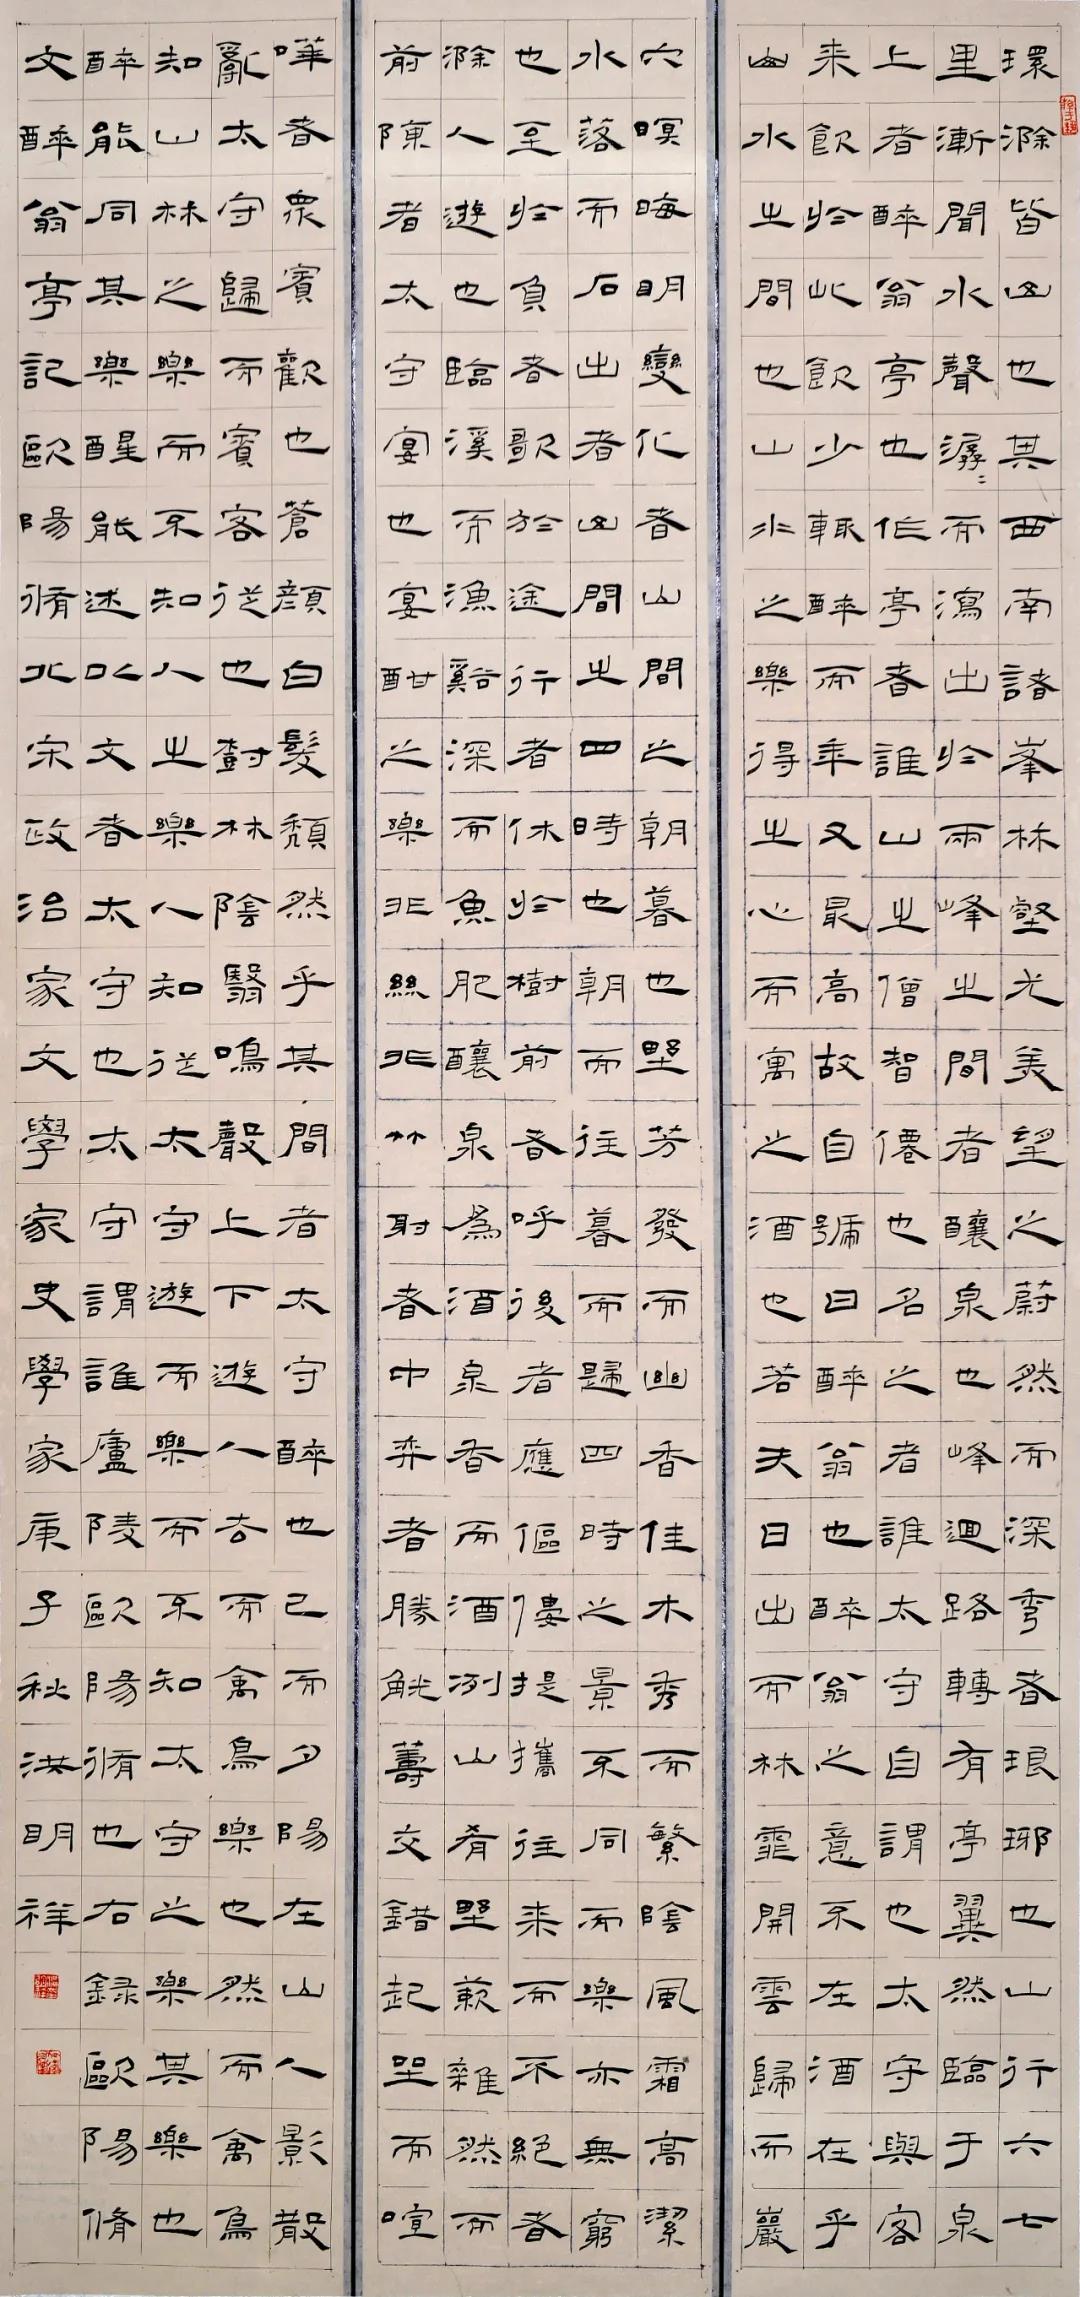 環滁皆山也其西南諸峯林壑尤美望之蔚然而深秀者琅琊也山行六七
里漸聞水聲潺〻而瀉出於兩峰之間者釀泉也峰迴路轉有亭翼然臨于泉
上者醉翁亭也作亭者誰山之僧智僊也名之者誰太守自謂也太守與客
来飲於此飲少輒醉而年又最高故自號曰醉翁也醉翁之意不在酒在乎
山水之間也山水之樂得之心而寓之酒也若夫日出而林霏開雲歸而巖
穴暝晦明變化者山間之朝暮也野芳發而幽香佳木秀而繁陰風霜高潔
水落而石出者山間之四時也朝而往暮而歸四時之景不同而樂亦無窮
也至於負者歌於途行者休於樹前者呼後者應傴僂提攜往来而不絕者
滁人遊也臨溪而漁谿深而魚肥釀泉為酒泉香而酒洌山肴野蔌雜然而
前陳者太守宴也宴酣之樂非絲非竹射者中弈者勝觥籌交錯起坐而喧
嘩者眾賓歡也蒼顏白髮頹然乎其間者太守醉也已而夕陽在山人影散
亂太守歸而賓客從也樹林陰翳鳴聲上下遊人去而禽鳥樂也然而禽鳥
知山林之樂而不知人之樂人知從太守遊而樂而不知太守之樂其樂也
醉能同其樂醒能述以文者太守也太守謂誰廬陵歐陽脩也右録歐陽脩
文醉翁亭記歐陽脩北宋政治家文學家史學家庚子秋洪明祥